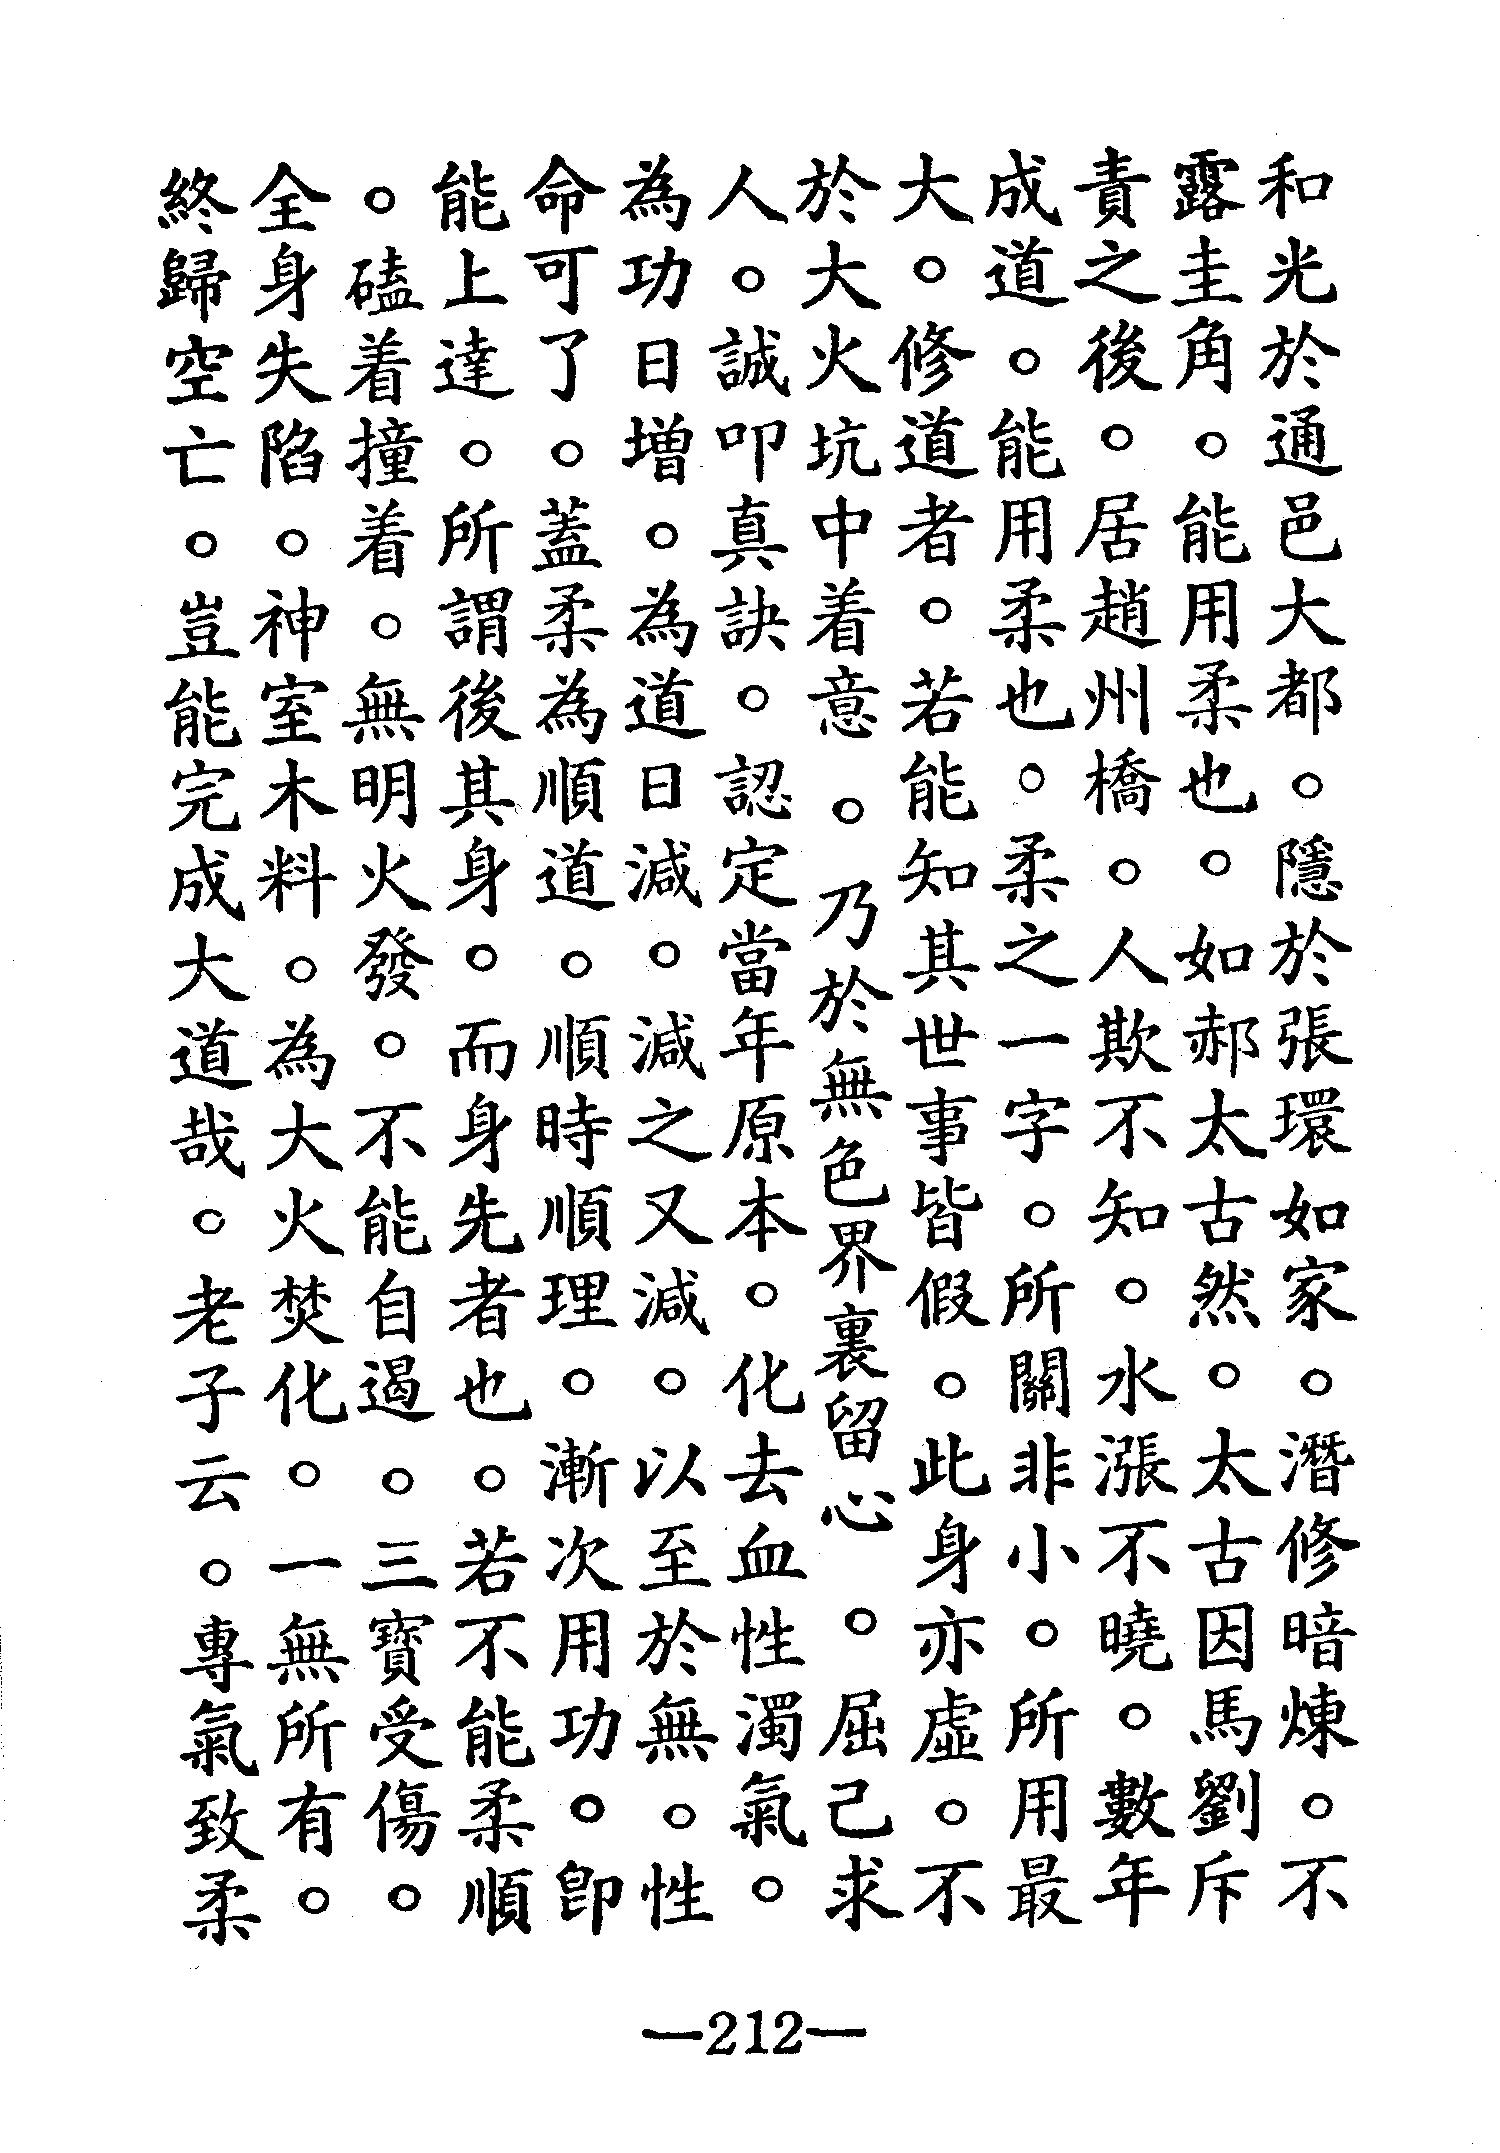 和光於通邑大都。隱於張環如家。潛修暗煉。不
露圭角。能用柔也。如郝太古然。太古因馬劉斥
責之後。居趙州橋。人欺不知。水漲不曉。數年
成道。能用柔也。柔之一字。所關非小。所用最
大。修道者。若能知其世事皆假。此身亦虛。不
於大火坑中着意。乃於無色界裏留心。屈己求
人。誠叩真訣。認定當年原本。化去血性濁氣。
為功日增。為道日減。減之又減。以至於無。性
命可了。蓋柔為順道。順時順理。漸次用功。即
能上達。所謂後其身。而身先者也。若不能柔順
。磕着撞着。無明火發。不能自遏。三寶受傷。
全身失陷。神室木料。為大火焚化。一無所有。
終歸空亡。豈能完成大道哉。老子云。專氣致柔
—212—